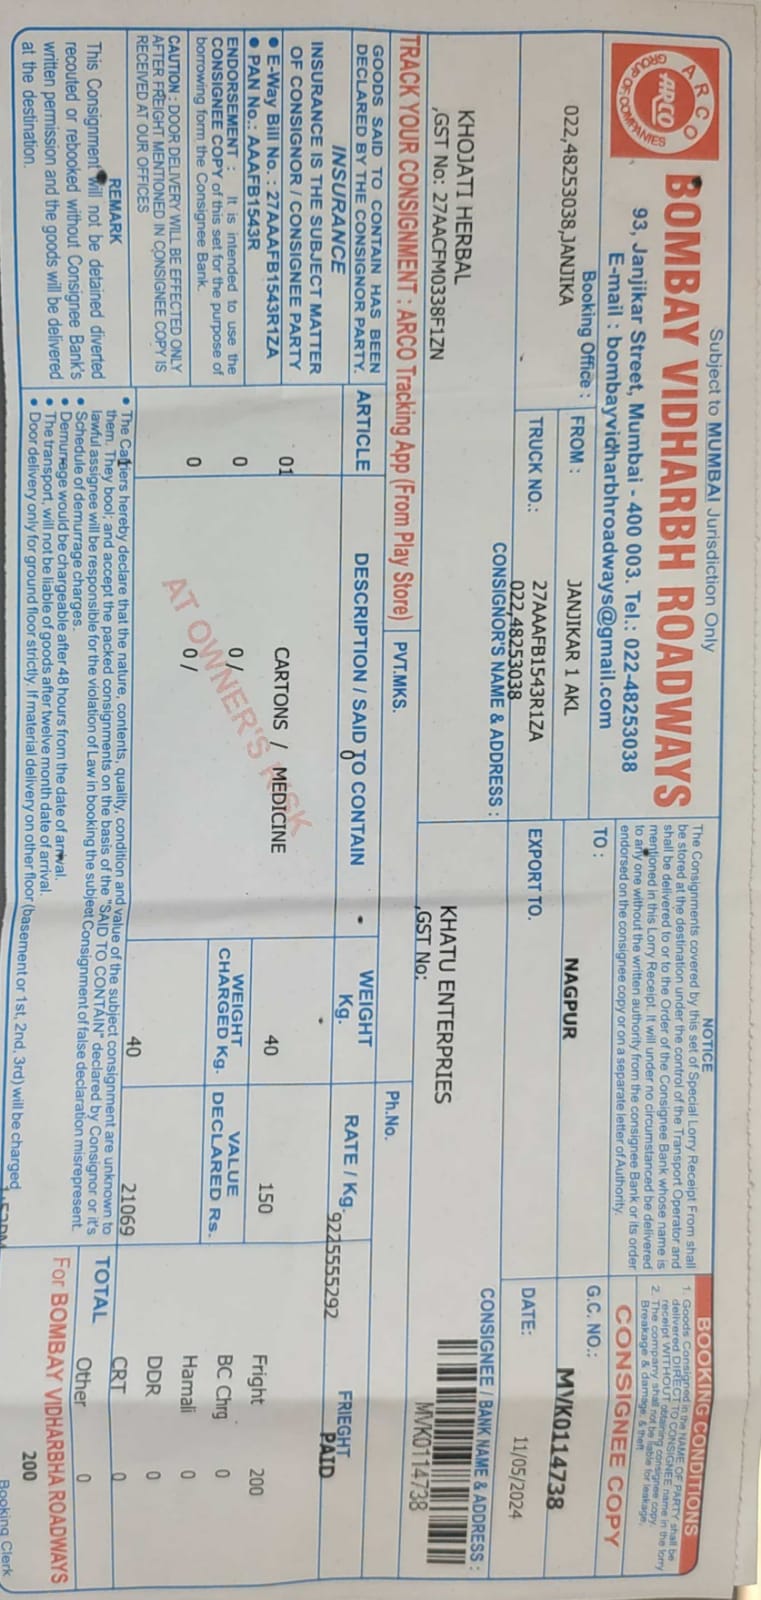 Subject to MUMBAI Jurisdiction Only
ARCO
ARCO
GROUP OF COMPANIES
BOMBAY VIDHARBH ROADWAYS
93, Janjikar Street, Mumbai - 400 003. Tel.: 022-48253038
E-mail : bombayvidharbhroadways@gmail.com
Booking Office :
022,48253038,JANJIKA
NOTICE
The Consignments covered by this set of Special Lorry Receipt From shall
be stored at the destination under the control of the Transport Operator and
shall be delivered to or to the Order of the Consignee Bank whose name is
mentioned in this Lorry Receipt. It will under no circumstanced be delivered
to any one without the written authority from the consignee Bank or its order
endorsed on the consignee copy or on a separate letter of Authority.
BOOKING CONDITIONS
1. Goods Consigned in the NAME OF PARTY shall be
delivered DIRECT TO CONSIGNEE name in the lorry
receipt WITHOUT obtaining consignee copy.
2. The company shall not be liable for leakage,
Breakage & damage, & theft
CONSIGNEE COPY
FROM :
JANJIKAR 1 AKL
TO :
NAGPUR
G.C. NO.:
MVK0114738
TRUCK NO.:
27AAAFB1543R1ZA
022,48253038
EXPORT TO.
DATE:
11/05/2024
CONSIGNOR'S NAME & ADDRESS :
KHOJATI HERBAL
,GST No: 27AACFM0338F1ZN
CONSIGNEE / BANK NAME & ADDRESS :
KHATU ENTERPRIES
,GST No:
MVK0114738
TRACK YOUR CONSIGNMENT : ARCO Tracking App (From Play Store)
PVT.MKS.
Ph.No.
GOODS SAID TO CONTAIN HAS BEEN
DECLARED BY THE CONSIGNOR PARTY.
INSURANCE
INSURANCE IS THE SUBJECT MATTER
OF CONSIGNOR / CONSIGNEE PARTY
• E-Way Bill No. : 27AAAFB1543R1ZA
• PAN No.: AAAFB1543R
ENDORSEMENT : It is intended to use the
CONSIGNEE COPY of this set for the purpose of
borrowing form the Consignee Bank.
CAUTION : DOOR DELIVERY WILL BE EFFECTED ONLY
AFTER FREIGHT MENTIONED IN CONSIGNEE COPY IS
RECEIVED AT OUR OFFICES
REMARK
This Consignment will not be detained diverted
recouted or rebooked without Consignee Bank's
written permission and the goods will be delivered
at the destination.
ARTICLE
DESCRIPTION / SAID TO CONTAIN
WEIGHT
Kg.
RATE / Kg.
FRIEGHT
0
9225555292
PAID
01
CARTONS / MEDICINE
40
150
Fright 200
0
0 /
WEIGHT
CHARGED Kg.
VALUE
DECLARED Rs.
BC Chrg 0
0
0 /
Hamali 0
DDR 0
AT OWNER'S RISK
1
40
21069
CRT 0
TOTAL
Other 0
• The Carriers hereby declare that the nature, contents, quality, condition and value of the subject consignment are unknown to
them. They bool; and accept the packed consignments on the basis of the "SAID TO CONTAIN" declared by Consignor or it's
lawful assignee will be responsible for the violation of Law in booking the subject Consignment of false declaration misrepresent.
• Schedule of demurrage charges.
• Demurrage would be chargeable after 48 hours from the date of arrival.
• The transport, will not be liable of goods after twelve month date of arrival.
• Door delivery only for ground floor strictly. If material delivery on other floor (basement or 1st, 2nd, 3rd) will be charged
For BOMBAY VIDHARBHA ROADWAYS
200
Booking Clerk